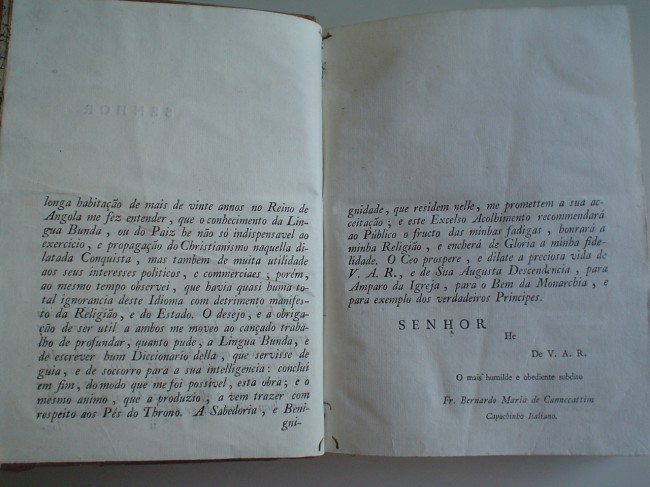 SENHOR
longa habitação de mais de vinte annos no Reino de
Angola me fez entender, que o conhecimento da Lin-
gua Bunda, ou do Paiz he não só indispensavel ao
exercicio, e propagação do Christianismo naquella di-
latada Conquista, mas tambem de muita utilidade
aos seus interesses politicos, e commerciaes; porém,
ao mesmo tempo observei, que havia quasi huma to-
tal ignorancia deste Idioma com detrimento manifes-
to da Religião, e do Estado. O desejo, e a obriga-
ção de ser util a ambos me moveo ao cançado traba-
lho de profundar, quanto pude, a Lingua Bunda, e
de escrever hum Diccionario della, que servisse de
guia, e de soccorro para a sua intelligencia: conclui
em fim, do modo que me foi possivel, esta obra; e o
mesmo animo, que a produzio, a vem trazer com
respeito aos Pés do Throno. A Sabedoria, e Beni-
gni-
gnidade, que residem nelle, me promettem a sua ac-
ceitação; e este Excelso Acolhimento recommendará
ao Público o fructo das minhas fadigas, honrará a
minha Religião, e encherá de Gloria a minha fide-
lidade. O Ceo prospere, e dilate a preciosa vida de
V. A. R., e de Sua Augusta Descendencia, para
Amparo da Igreja, para o Bem da Monarchia, e
para exemplo dos verdadeiros Principes.
SENHOR
He
De V. A. R.
O mais humilde e obediente subdito
Fr. Bernardo Maria de Cannecattim
Capuchinho Italiano.